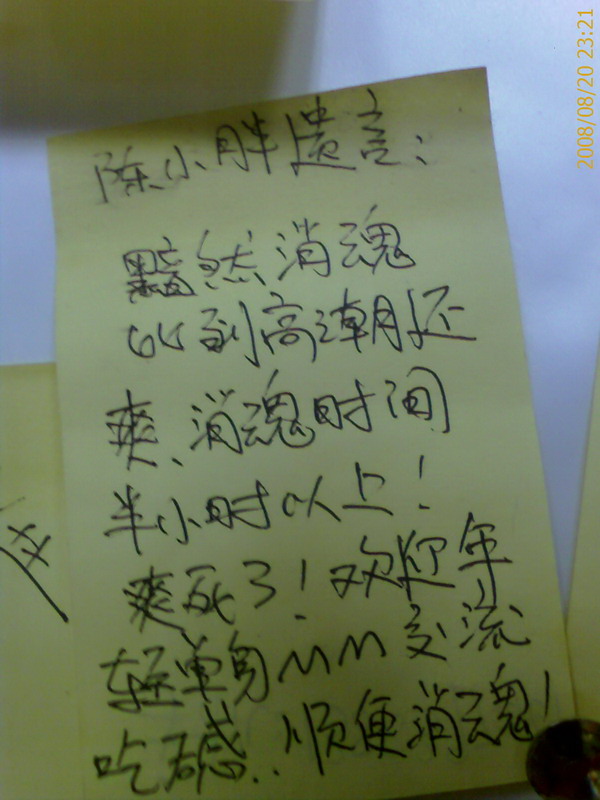 陈小胖遗言：
黯然消魂
比到高潮还
爽、消魂时间
半小时以上！
爽死了！欢迎年
轻单身MM交流
吃碱..顺便消魂！
2008/08/20 23:21